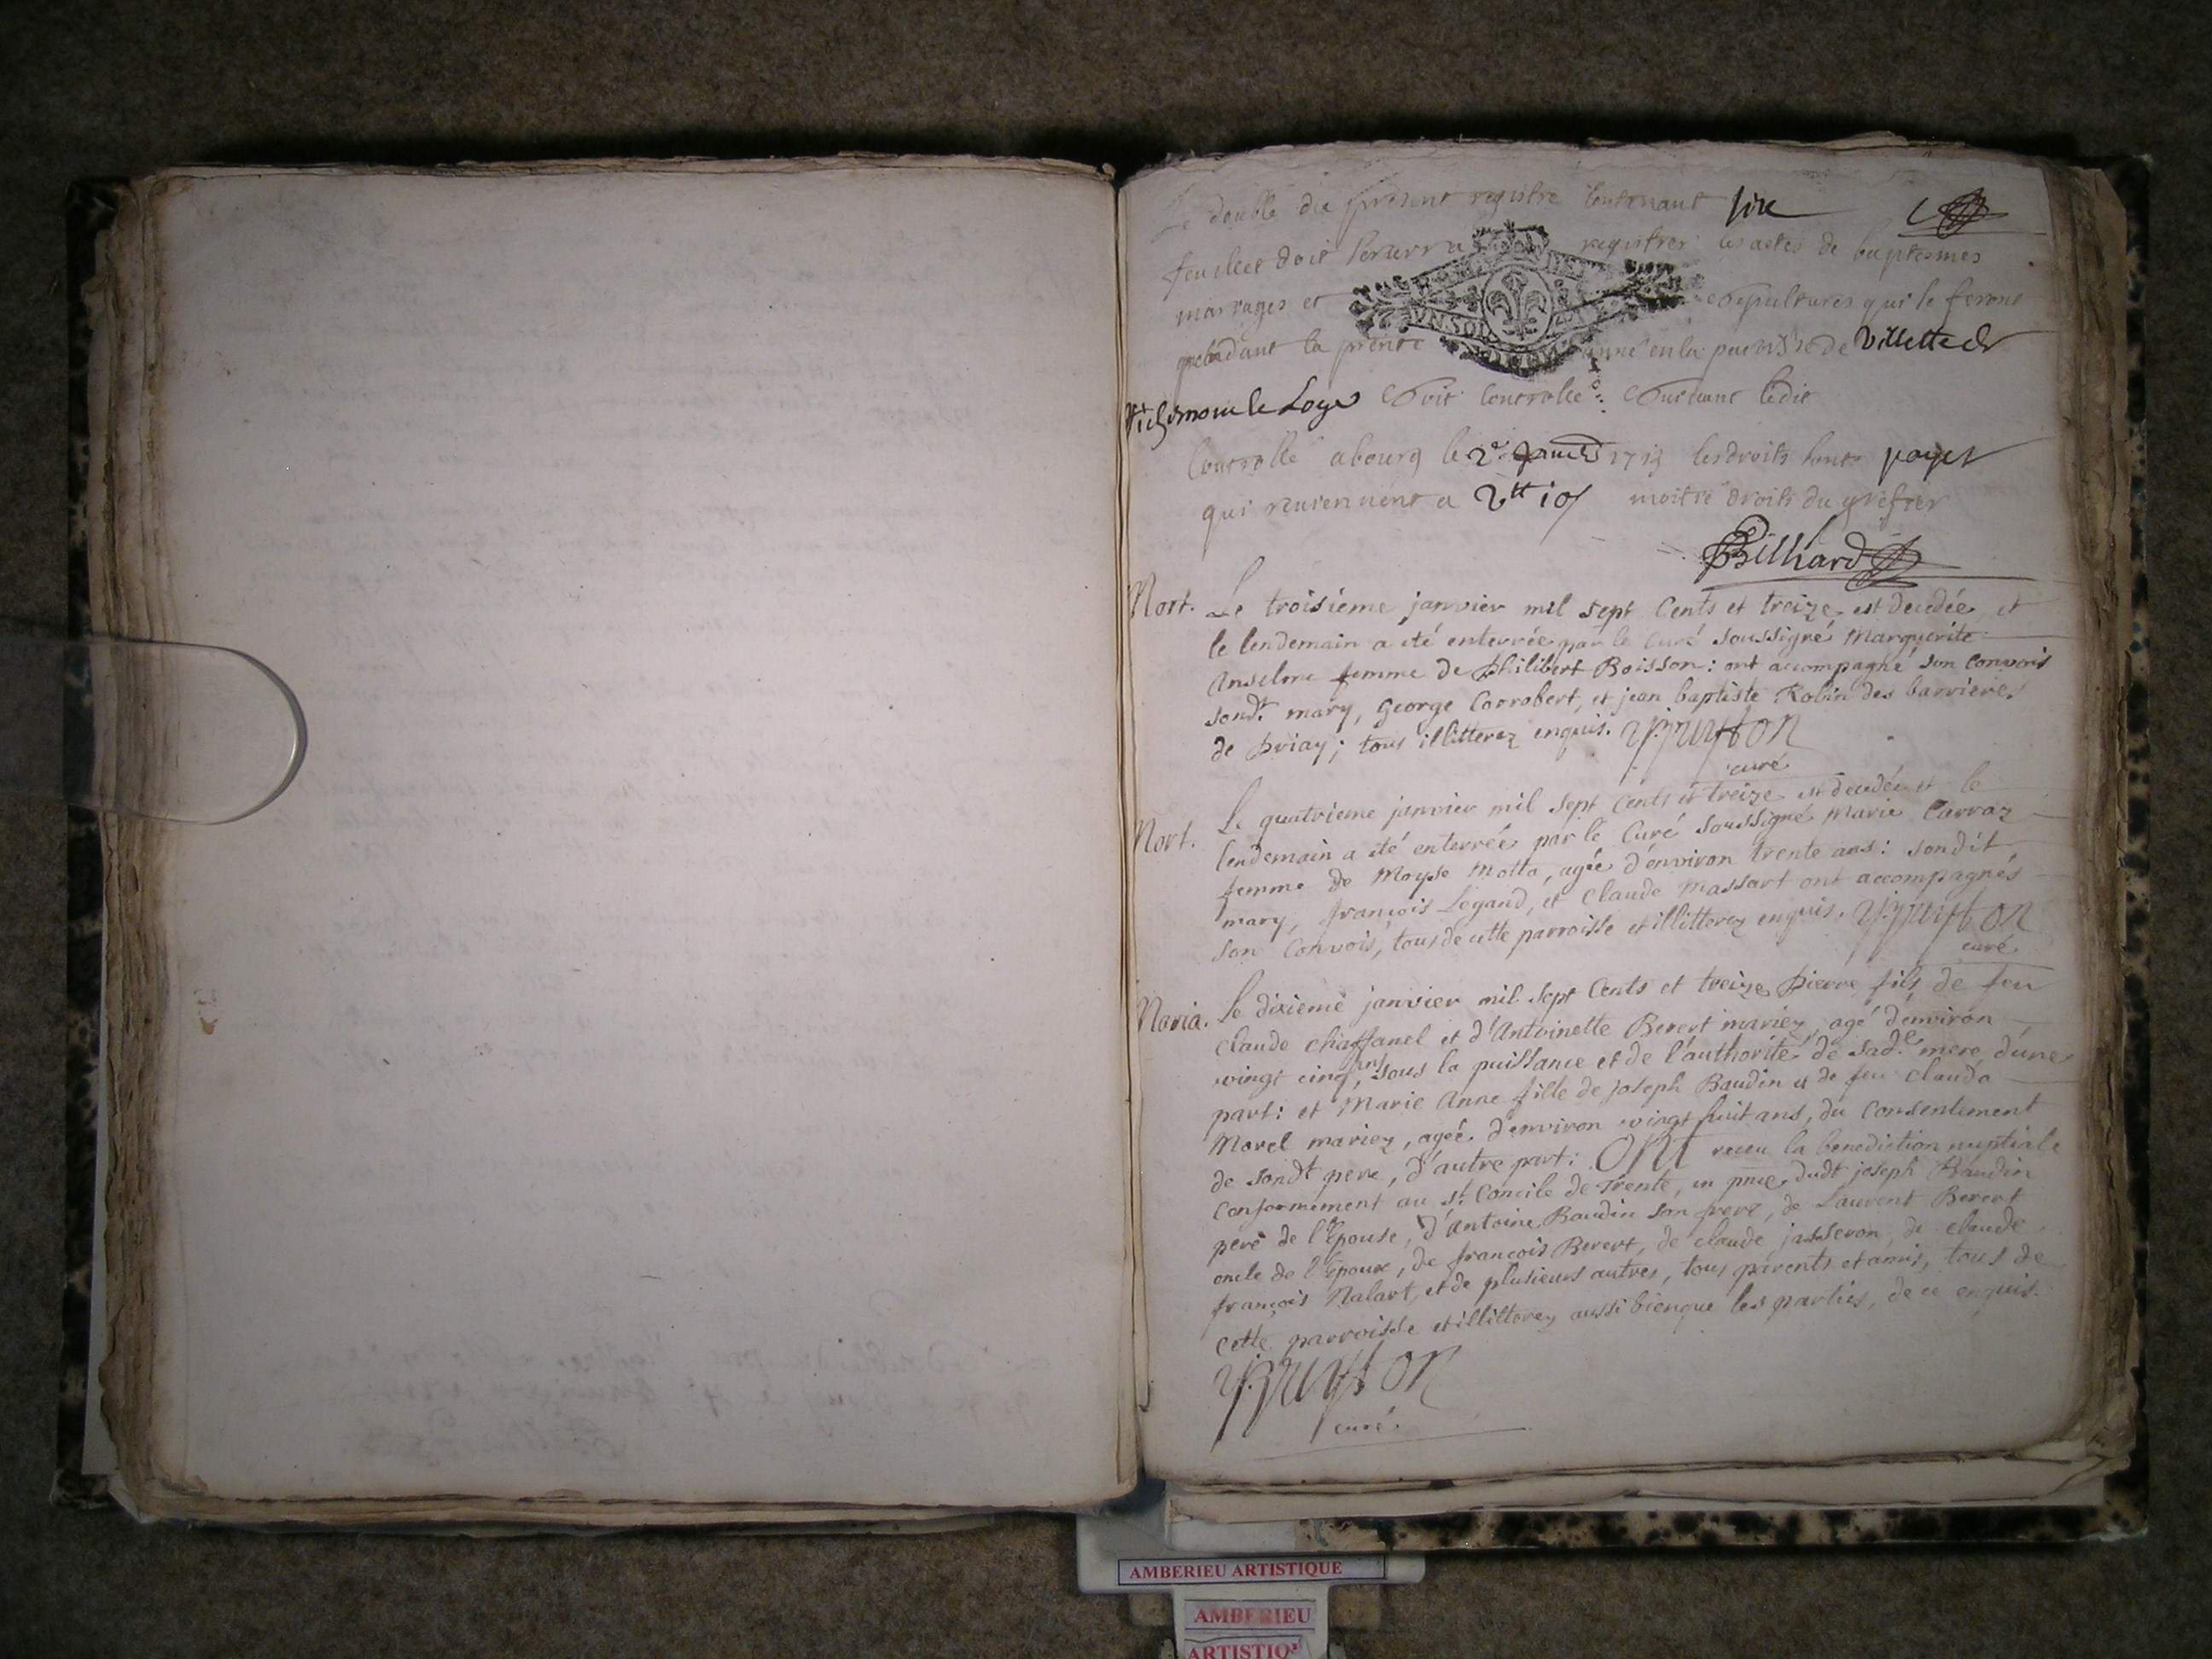 Le double du present registre contenant six
feuillet doit servir a registrer les actes de baptesmes
mariages et sepultures qui se feront
pendant la pnte anné en la parroisse de Villette et
Richemon le Loye Doit controllé: Suivant ledit
Controllé a bourg le 2e Janvier 1713 les droits sont payes
qui reviennent a 2tt 10s moitié droits du greffier
Billiard
Mort. Le troisiéme janvier mil sept Cents et treize est decedée, et
le lendemain a été enterrée par le Curé soussigné Marguerite
Anselme femme de philibert Boisson: ont accompagné son convois
sondt. mary, George Corrobert, et jean baptiste Robin des barrieres
de priay; tous illitterez enquis.
curé
Mort. Le quatrieme janvier mil sept Cents et treize est decedée et le
lendemain a été enterreé par le Curé soussigné Marie Carraz
femme de Moyse Motta, agée d'environ trente ans: sondit
mary, françois Legand, et Claude Massart ont accompagnés
son Convois, tous de cette parroisse et illitterez enquis.
curé
Maria. Le dixiemé janvier mil sept Cents et treize pierre fils de feu
Claude chaffanel et d'Antoinette Berert mariez, agé d'environ
vingt cinq ans, sous la puissance et de l'authorité de sade. mere, d'une
part: et Marie Anne fille de joseph Baudin et de feu Clauda
Morel mariez, agée d'environ vingt huit ans, du Consentement
de sondt pere, d'autre part: ONT receu la benediction nuptiale
Conformément au st. Concile de Trente, en pnce dudt joseph Baudin
peré de l'Epouse, d'Antoine Baudin son frere, de Laurent Berert
oncle de l'Epoux, de françois Berert, de claude jasseron, de claude
françois Nalart, et de plusieurs autres, tous parents et amis, tous de
cette parroisse et illitterez aussi bienque les parties, de ce enquis.
curé.
AMBERIEU ARTISTIQUE
AMBERIEU
ARTISTIQ